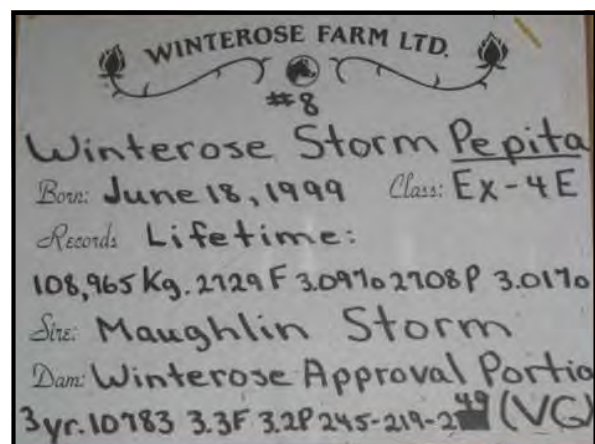 WINTEROSE FARM LTD.
#8
Winterose Storm Pepita
Born: June 18, 1999 Class: Ex-4E
Records Lifetime:
108,965 Kg. 2729 F 3.09% 2708P 3.01%
Sire: Maughlin Storm
Dam: Winterose Approval Portia
3yr. 10783 3.3F 3.2P 245-219-249 (VG)